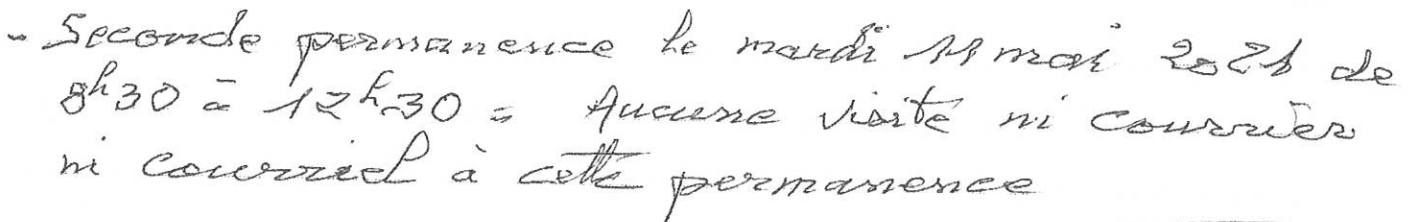 - Seconde permanence le mardi 11 mai 2021 de
8h30 à 12h30 = Aucune visite ni courrier
ni courriel à cette permanence